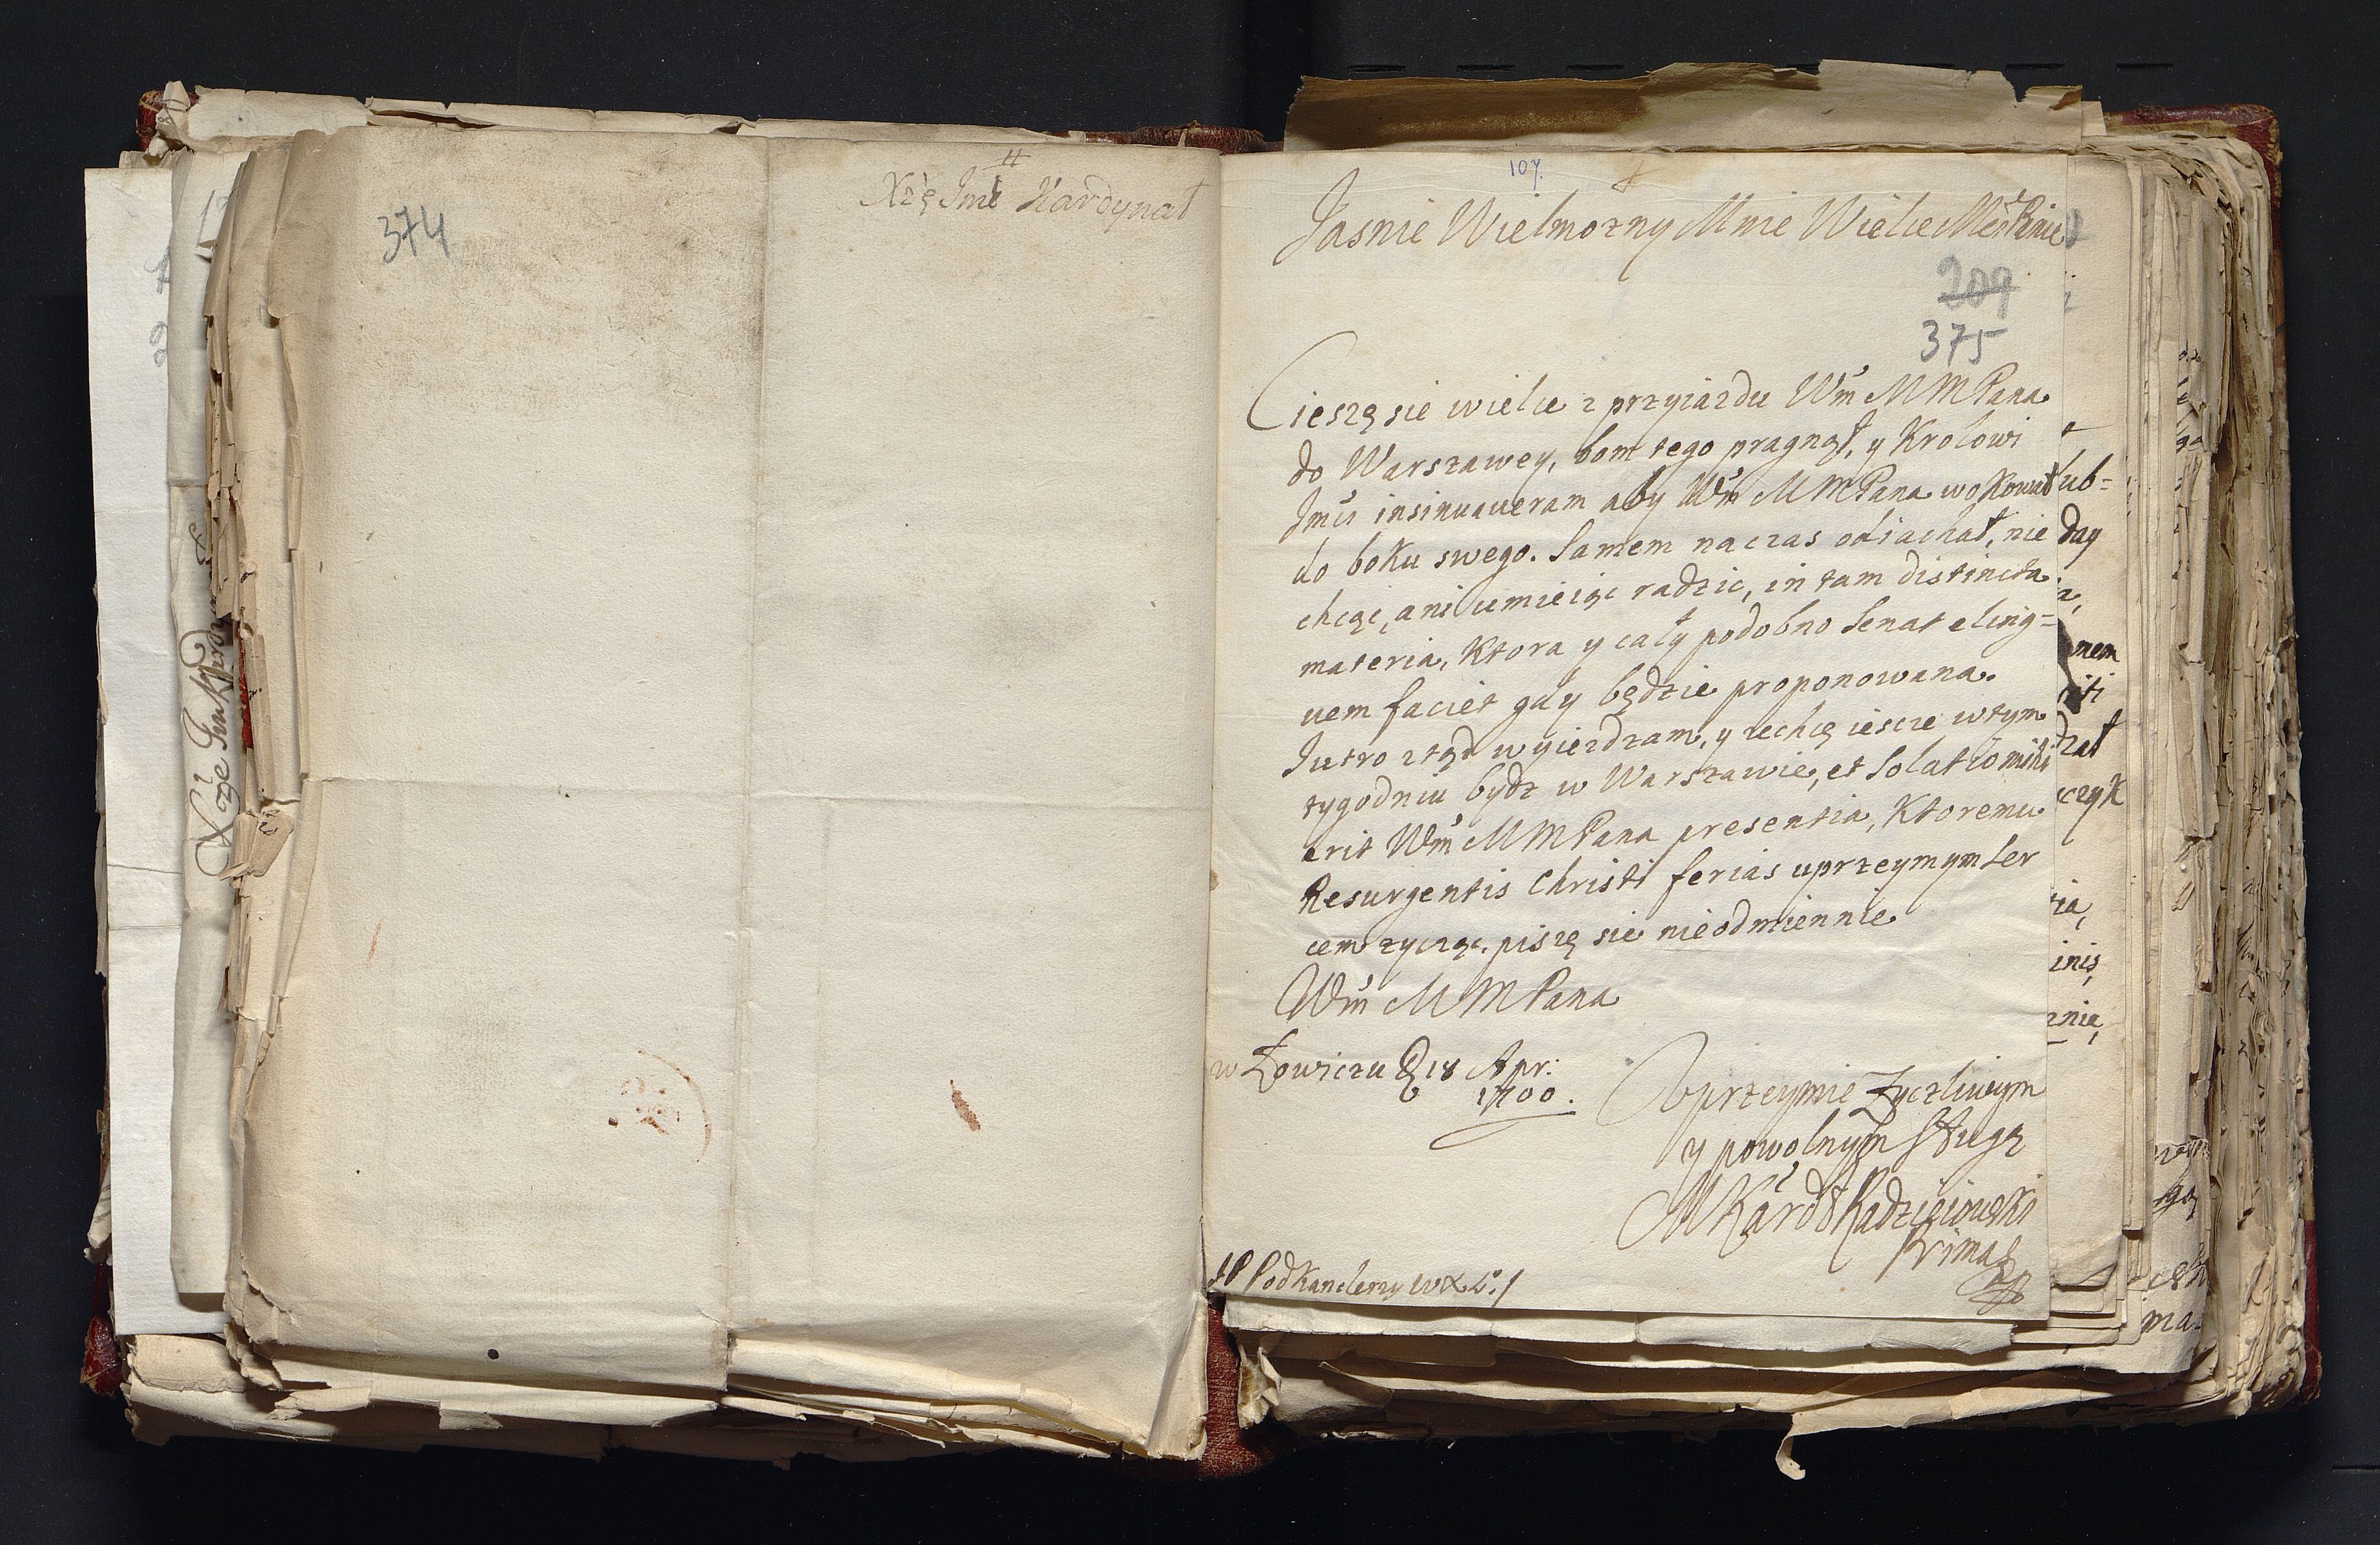 374
Xżę Jmć Kardynał
107.
Jasnie Wielmozny Mnie Wielce Mśćwy Panie
209
375
Cieszę sie wielce z przyiazdu Wm̃ M M Pana
do Warszawey, bom tego pragnął, y Krolowi
Jmći insinuaueram aby Wm̃ M M Pana wokował
do boku swego. Samem na czas odiachał, nie
chcąc, ani umieiąc radzic, in tam distincta
materia, Ktora y cały podobno Senat eling=
uem faciet gdy będzie proponowana.
Jutro ztąd wyiezdzam, y zechcę iescze wtym
tygodniu bydz w Warszawie, et Solatio mihi
erit Wm̃ M M Pana presentia, Ktoremu
Resurgentis Christi ferias uprzeymym ser
cem zycząc. piszę sie nieodmiennie
Wm̃ M M Pana
w Łowiczu D 18 Apr:
1700.
Uprzeymie Zyczliwym
y powolnym sługą
M Kard Radzieiowski
Primas
JP PodKanclerzy WXL: